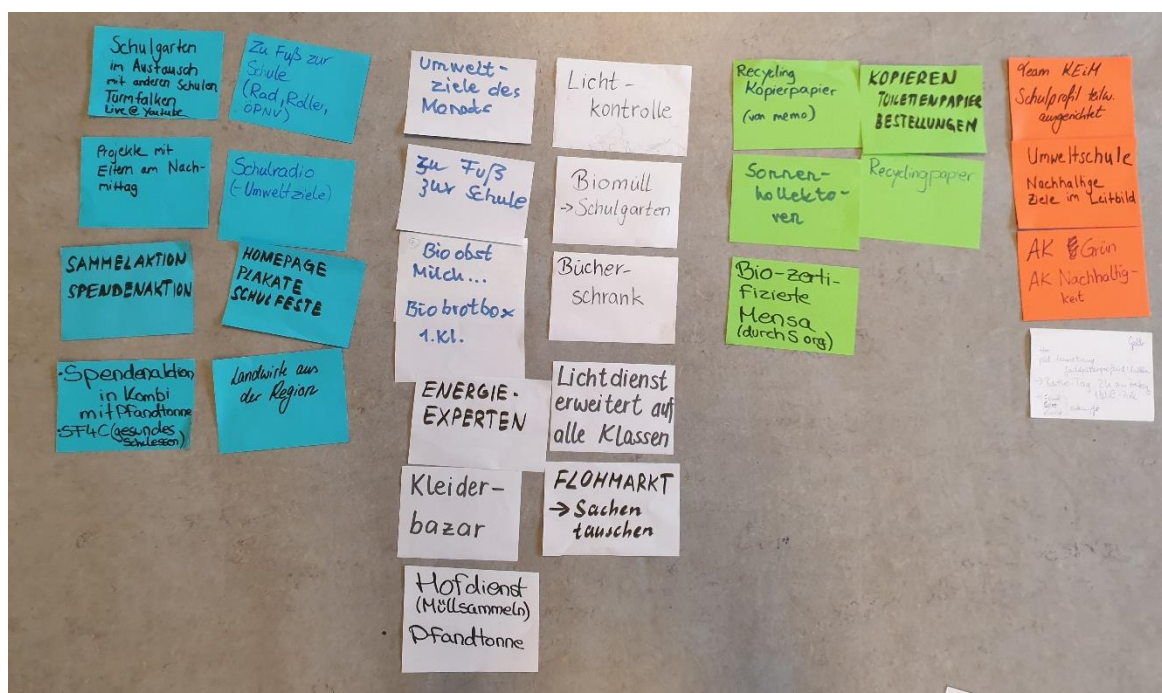 Schulgarten
im Austausch
mit anderen Schulen
Turmfalken
Live@Youtube
Projekte mit
Eltern am Nach-
mittag
SAMMELAKTION
SPENDENAKTION
• Spendenaktion
in Kombi
mit Pfandtonne
• SF4C (gesundes
Schulessen)
Zu Fuß zur
Schule
(Rad, Roller,
ÖPNV)
Schulradio
(-Umweltziele)
HOMEPAGE
PLAKATE
SCHULFESTE
Landwirte aus
der Region
Umwelt-
ziele des
Monats
Zu Fuß
zur Schule
Bio obst
Milch...
Bio brotbox
1. Kl.
ENERGIE-
EXPERTEN
Kleider-
bazar
Hofdienst
(Müllsammeln)
Pfandtonne
Licht-
kontrolle
Biomüll
→ Schulgarten
Bücher-
schrank
Lichtdienst
erweitert auf
alle Klassen
FLOHMARKT
→ Sachen
tauschen
Recycling
Kopierpapier
(von memo)
Sonnen-
kollekto-
ren
Bio-zerti-
fizierte
Mensa
(durch S org)
KOPIEREN
TOILETTENPAPIER
BESTELLUNGEN
Recyclingpapier
Team KEiM
Schulprofil teilw.
ausgerichtet
Umweltschule
Nachhaltige
Ziele im Leitbild
AK Grün
AK Nachhaltig-
keit
Gelb